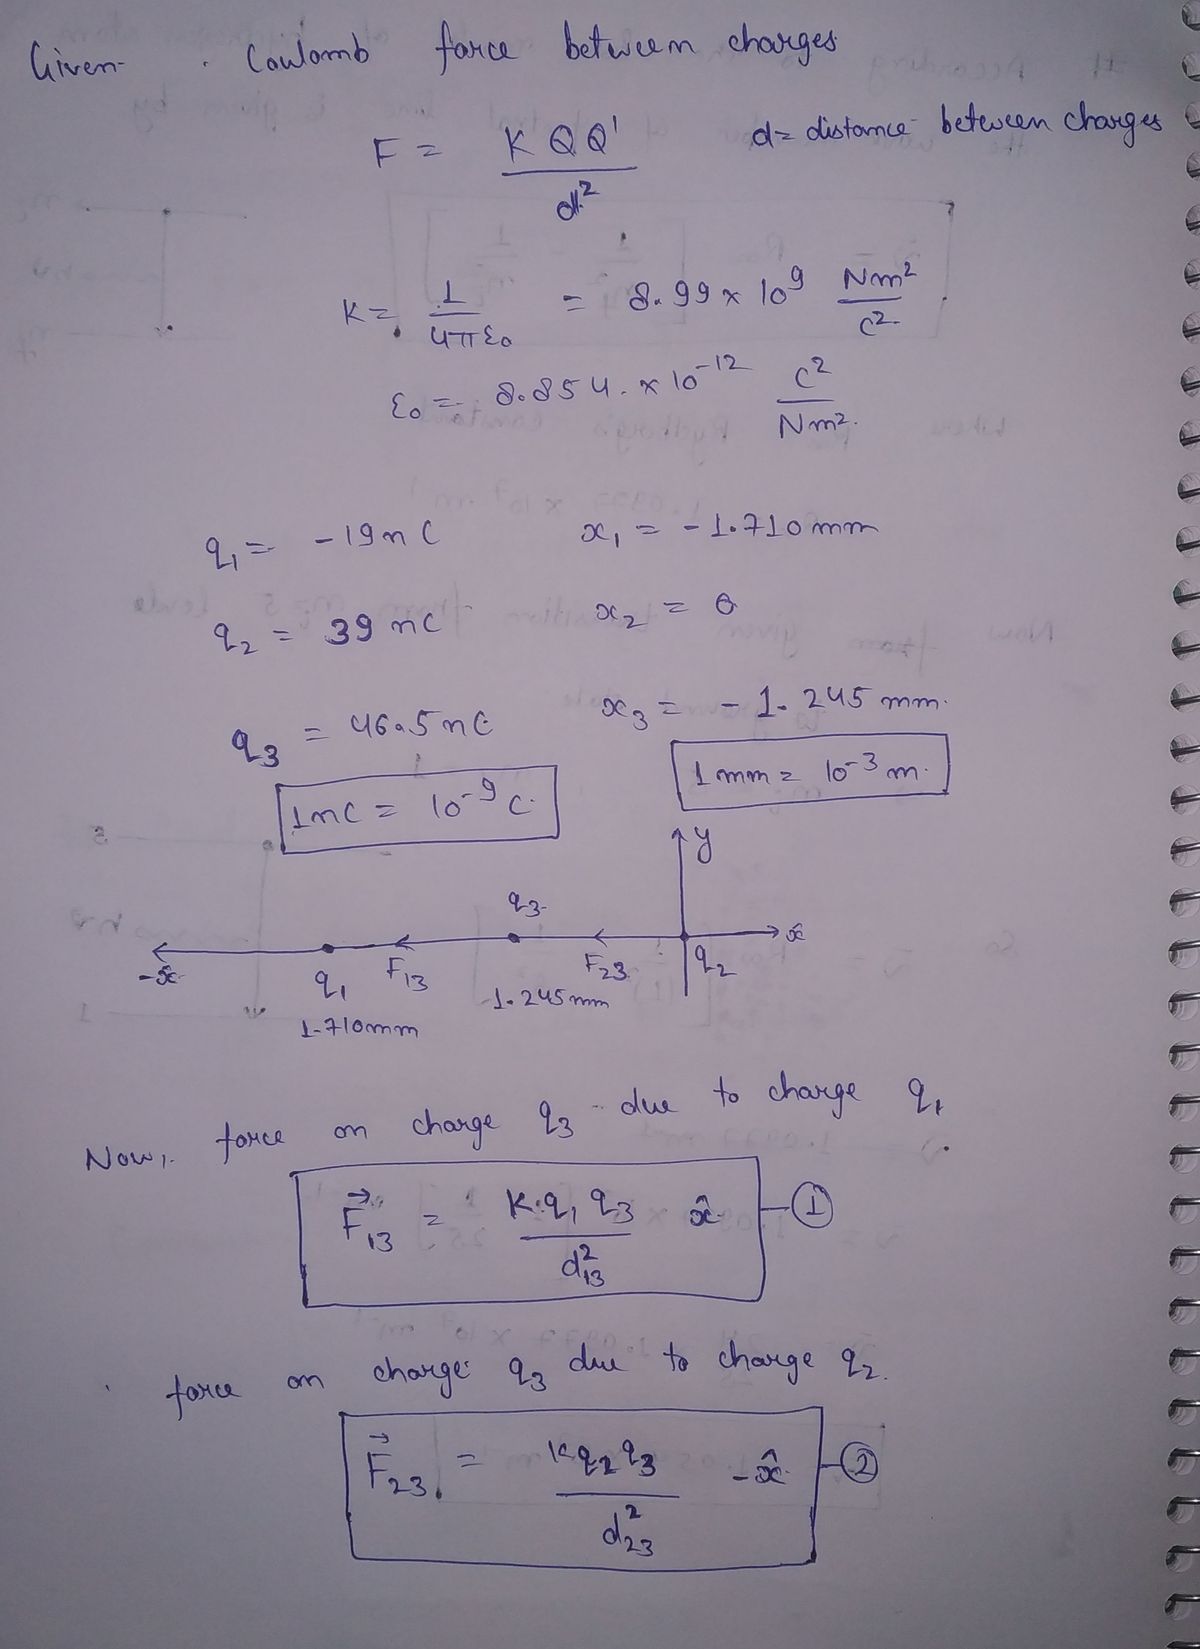 Given- Coulomb force between charges
F = K Q Q' / d² d = distance between charges
K = 1 / 4πε₀ = 8.99 × 10⁹ Nm² / C²
ε₀ = 8.854 × 10⁻¹² C² / Nm².
q₁ = -19 nC x₁ = -1.710 mm
q₂ = 39 nC x₂ = 0
q₃ = 46.5 nC x₃ = -1.245 mm.
1 nC = 10⁻⁹ C. 1 mm = 10⁻³ m.
y
q₃
-x̂ q₁ F₁₃ F₂₃ q₂ x̂
1.710mm 1.245mm
Now, force on charge q₃ due to charge q₁.
F⃗₁₃ = K q₁ q₃ / d₁₃² x̂ ①
force on charge q₃ due to charge q₂.
F⃗₂₃ = K q₂ q₃ / d₂₃² -x̂ ②